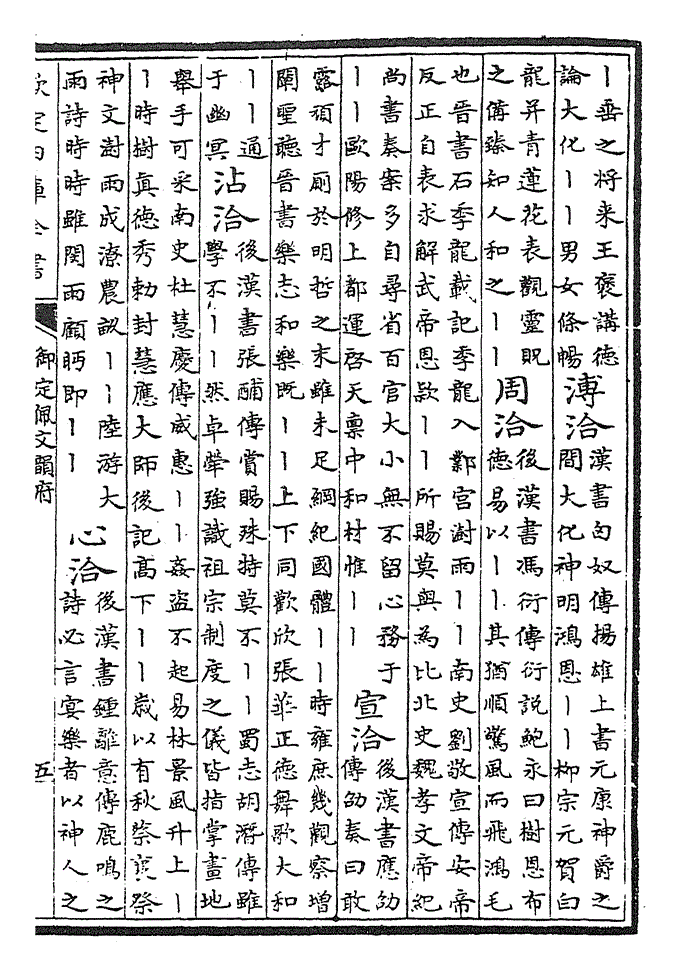 丨垂之将来王褒講德
論大化丨丨男女條暢
溥洽
漢書匈奴傳揚雄上書元康神爵之
間大化神明鴻恩丨丨栁宗元賀白
龍并青蓮花表觀靈貺
之備臻知人和之丨丨
周洽
後漢書馮衍傳衍説鮑永曰樹恩布
德易以丨丨其猶順驚風而飛鴻毛
也晉書石季龍載記季龍入鄴宫澍雨丨丨南史劉敬宣傳安帝
反正自表求解武帝恩欵丨丨所賜莫與為比北史魏孝文帝紀
尚書奏案多自尋省百官大小無不留心務于
丨丨歐陽修上都運啓天稟中和材惟丨丨
宣洽
後漢書應劭
傳劭奏曰敢
露頑才厠於明哲之末雖未足綱紀國體丨丨時雍庶幾觀察增
闡聖聽晉書樂志和樂既丨丨上下同歡欣張華正德舞歌大和
丨丨通
于幽冥
沾洽
後漢書張酺傳賞賜殊特莫不丨丨蜀志胡潛傳雖
學不丨丨然卓犖強識祖宗制度之儀皆指掌畫地
舉手可采南史杜慧慶傳威惠丨丨姦盗不起易林景風升上丨
丨時樹真德秀勅封慧應大師後記髙下丨丨歲以有秋禜襄祭
神文澍雨成潦農畝丨丨陸游大
雨詩時時雖閔雨顧眄即丨丨
心洽
後漢書鍾離意傳鹿鳴之
詩必言宴樂者以神人之
欽定四庫全書
御定佩文韻府
五